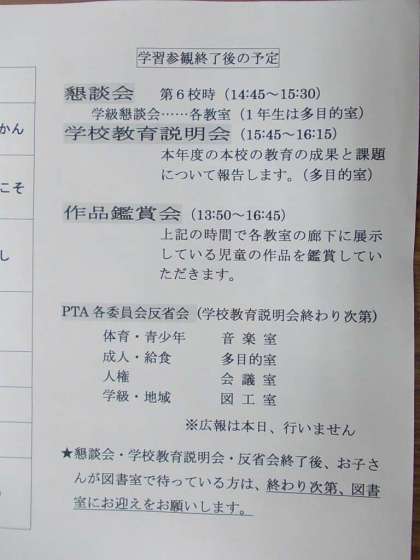 学習参観終了後の予定
懇談会 第6校時（14:45～15:30）
学級懇談会……各教室（1年生は多目的室）
学校教育説明会（15:45～16:15）
本年度の本校の教育の成果と課題
について報告します。（多目的室）
作品鑑賞会（13:50～16:45）
上記の時間で各教室の廊下に展示
している児童の作品を鑑賞してい
ただきます。
PTA各委員会反省会（学校教育説明会終わり次第）
体育・青少年 音楽室
成人・給食 多目的室
人権 会議室
学級・地域 図工室
※広報は本日、行いません
★懇談会・学校教育説明会・反省会終了後、お子さ
んが図書室で待っている方は、終わり次第、図書
室にお迎えをお願いします。
かん
こそ
し